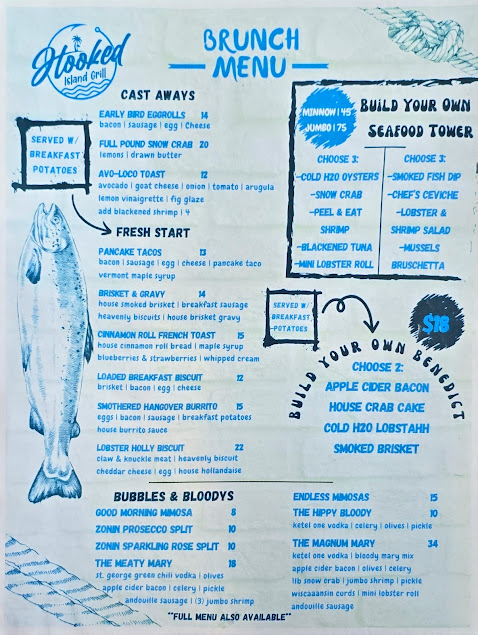 Hooked
Island Grill
BRUNCH
MENU
CAST AWAYS
EARLY BIRD EGGROLLS 14
bacon | sausage | egg | Cheese
FULL POUND SNOW CRAB 20
lemons | drawn butter
AVO-LOCO TOAST 12
avocado | goat cheese | onion | tomato | arugula
lemon vinaigrette | fig glaze
add blackened shrimp | 4
SERVED W/
BREAKFAST
POTATOES
FRESH START
PANCAKE TACOS 13
bacon | sausage | egg | cheese | pancake taco
vermont maple syrup
BRISKET & GRAVY 14
house smoked brisket | breakfast sausage
heavenly biscuits | house brisket gravy
CINNAMON ROLL FRENCH TOAST 15
house cinnamon roll bread | maple syrup
blueberries & strawberries | whipped cream
LOADED BREAKFAST BISCUIT 12
brisket | bacon | egg | cheese
SMOTHERED HANGOVER BURRITO 15
eggs | bacon | sausage | breakfast potatoes
house burrito sauce
LOBSTER HOLLY BISCUIT 22
claw & knuckle meat | heavenly biscuit
cheddar cheese | egg | house hollandaise
MINNOW | 45
JUMBO | 75
BUILD YOUR OWN
SEAFOOD TOWER
CHOOSE 3:
-COLD H2O OYSTERS
-SNOW CRAB
-PEEL & EAT
SHRIMP
-BLACKENED TUNA
-MINI LOBSTER ROLL
CHOOSE 3:
-SMOKED FISH DIP
-CHEF'S CEVICHE
-LOBSTER &
SHRIMP SALAD
-MUSSELS
BRUSCHETTA
SERVED W/
BREAKFAST
POTATOES
$18
BUILD YOUR OWN BENEDICT
CHOOSE 2:
APPLE CIDER BACON
HOUSE CRAB CAKE
COLD H2O LOBSTAHH
SMOKED BRISKET
BUBBLES & BLOODYS
GOOD MORNING MIMOSA 8
ZONIN PROSECCO SPLIT 10
ZONIN SPARKLING ROSE SPLIT 10
THE MEATY MARY 18
st. george green chili vodka | olives
apple cider bacon | celery | pickle
andouille sausage | (3) jumbo shrimp
ENDLESS MIMOSAS 15
THE HIPPY BLOODY 10
ketel one vodka | celery | olives | pickle
THE MAGNUM MARY 34
ketel one vodka | bloody mary mix
apple cider bacon | olives | celery
1lb snow crab | jumbo shrimp | pickle
wiscaaansin curds | mini lobster roll
andouille sausage
**FULL MENU ALSO AVAILABLE**